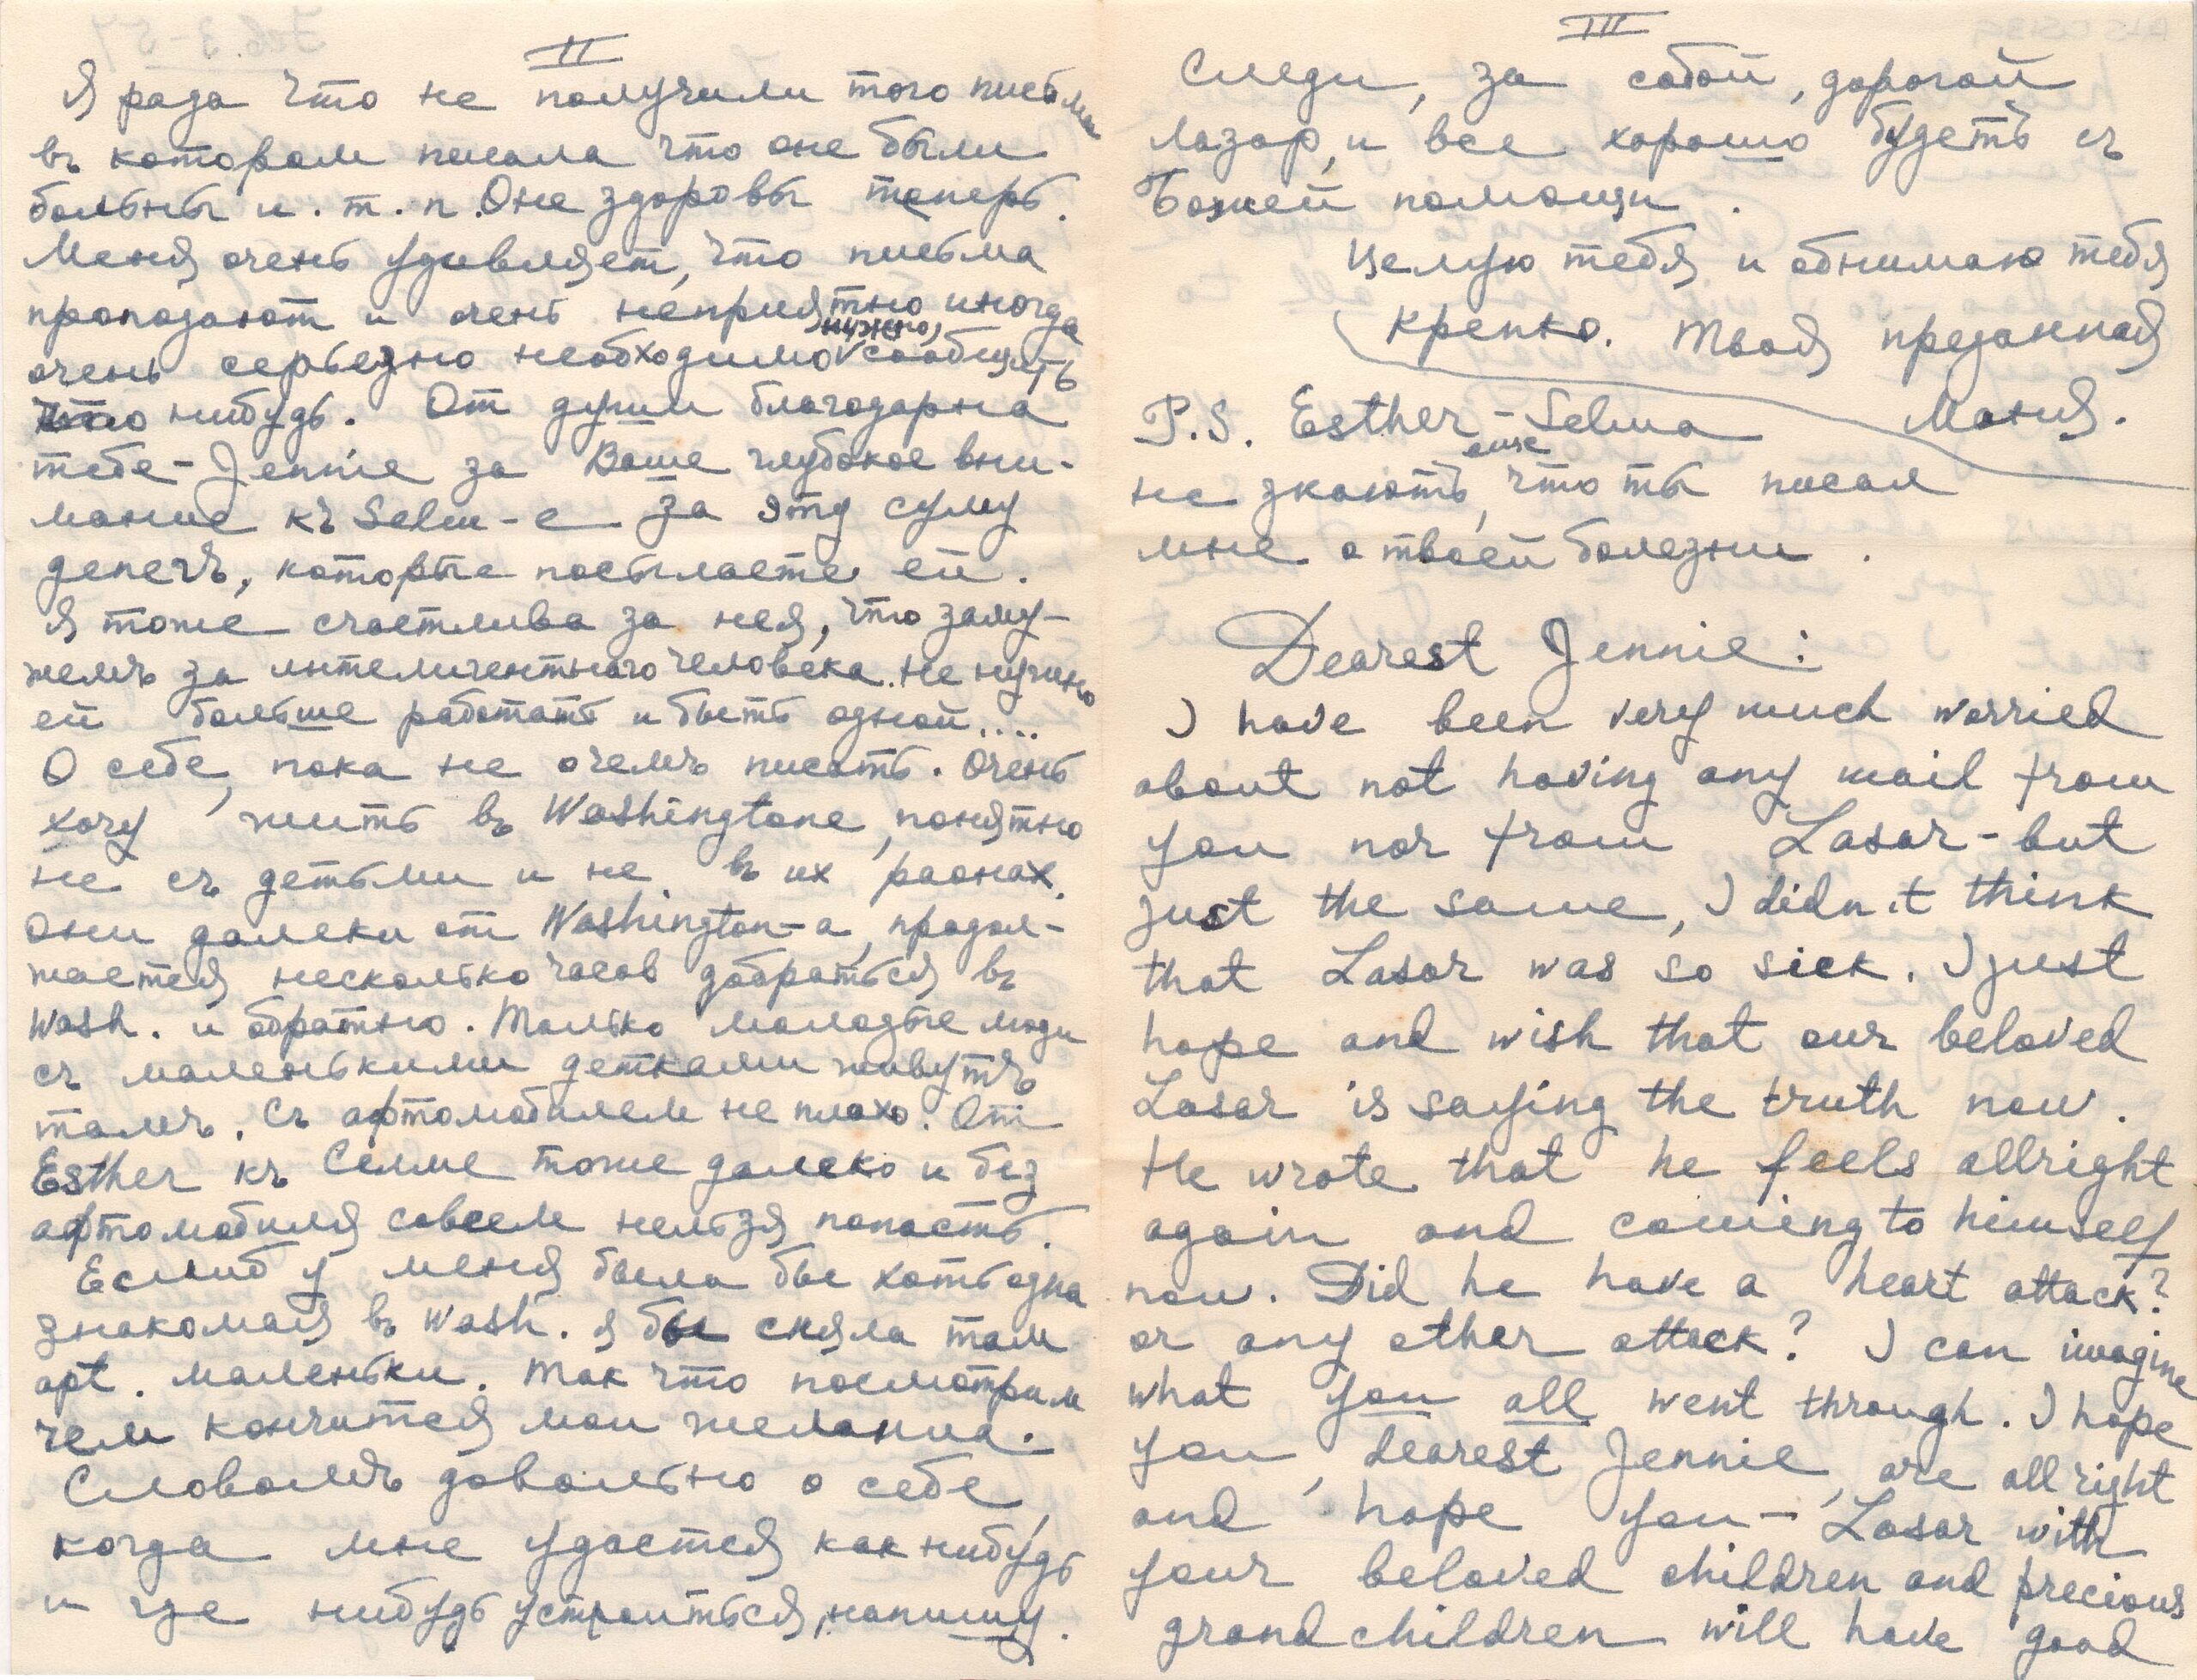 II
Я рада что не получили того письма
въ котором писала что оне были
больны и. т. п. Оне здоровы теперь.
Меня очень удивляет, что письма
пропадают и очень неприятно иногда
очень серьезно необходимо нужно, сообщить
что нибудь. От души благодарна
тебе - Jennie за Ваше глубокое вни-
мание къ Selm-е за эту суму
денегъ, которые посылаете ей.
Я тоже счастлива за нея, что заму-
жемъ за интелигентного человека. не нужно
ей больше работать и быть одной....
О себе, пока не очемъ писать. Очень
хочу жить въ Washingtone, понятно
не съ детьми и не въ их раонах.
Они далеки от Washington-а, продол-
жается несколько часов добраться въ
Wash. и обратно. Только молодые люди
съ маленькими детками живутъ
тамъ. Съ афтомобилем не плохо. От
Esther къ Селме тоже далеко и без
афтомобиля совсем нельзя попасть.
Еслиб у меня была бы хоть одна
знакомая въ Wash. я бы сняла там
apt. маленьки. Так что посмотрим
чем кончится мои желания.
Словомъ довольно о себе,
когда мне удастся как нибудь
и где нибудь устроиться, напишу.
III
Следи, за собой, дорогой
лазар, и все хорошо будетъ съ
Божей помощи.
Целую тебя и обнимаю тебя
крепко. Твоя преданная
Маня.
P.S. Esther - Selma
не знаютъ еще, что ты писал
мне о твоей болезни.
Dearest Jennie:
I have been very much worried
about not having any mail from
you nor from Lasar - but
just the same, I didn't think
that Lasar was so sick. I just
hope and wish that our beloved
Lasar is saying the truth now.
He wrote that he feels allright
again and comeing to himself
now. Did he have a heart attack?
or any other attack? I can imagine
what you all went through. I hope
you, dearest Jennie, are all right
and hope you - Lasar with
your beloved children and precious
grandchildren will have good